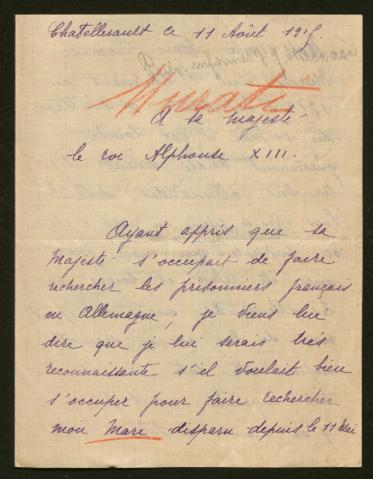 Chatellerault ce 11 Août 1915.
Murati
A sa Majesté
le roi Alphonse XIII.
Ayant appris que sa
Majesté s'occupait de faire
rechercher les prisonniers français
en Allemagne, je viens lui
dire que je lui serais très
reconnaissante s'il voulait bien
s'occuper pour faire rechercher
mon Mari disparu depuis le 11 Mai